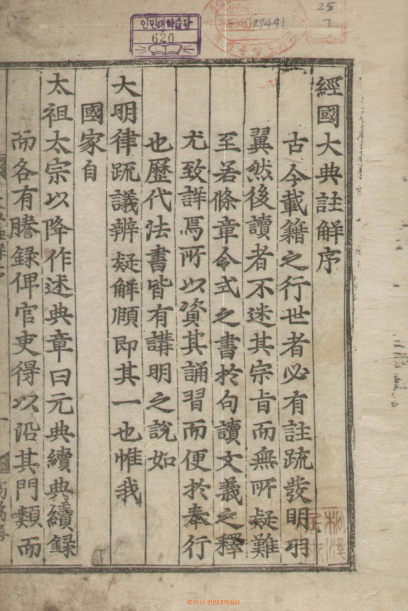 인민대학습당
620
27491
25
7
經國大典註解序
古今載籍之行世者必有註疏發明羽
翼然後讀者不迷其宗旨而無所疑難
至若條章令式之書於句讀文義之釋
尤致詳焉所以資其誦習而便於奉行
也歷代法書皆有講明之說如
大明律疏議辨疑解頤即其一也惟我
國家自
太祖太宗以降作述典章曰元典續典續錄
而各有謄錄俾官吏得以沿其門類而